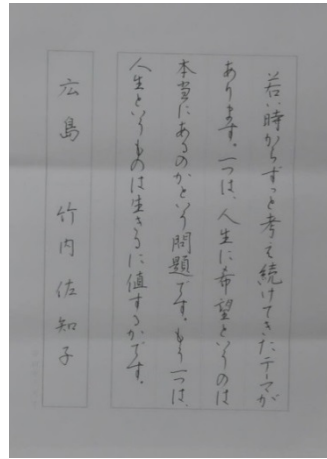 若い時からずっと考え続けてきたテーマが
あります。一つは、人生に希望というのは
本当にあるのかという問題です。もう一つは、
人生というものは生きるに値するかです。
広島 竹内佐知子